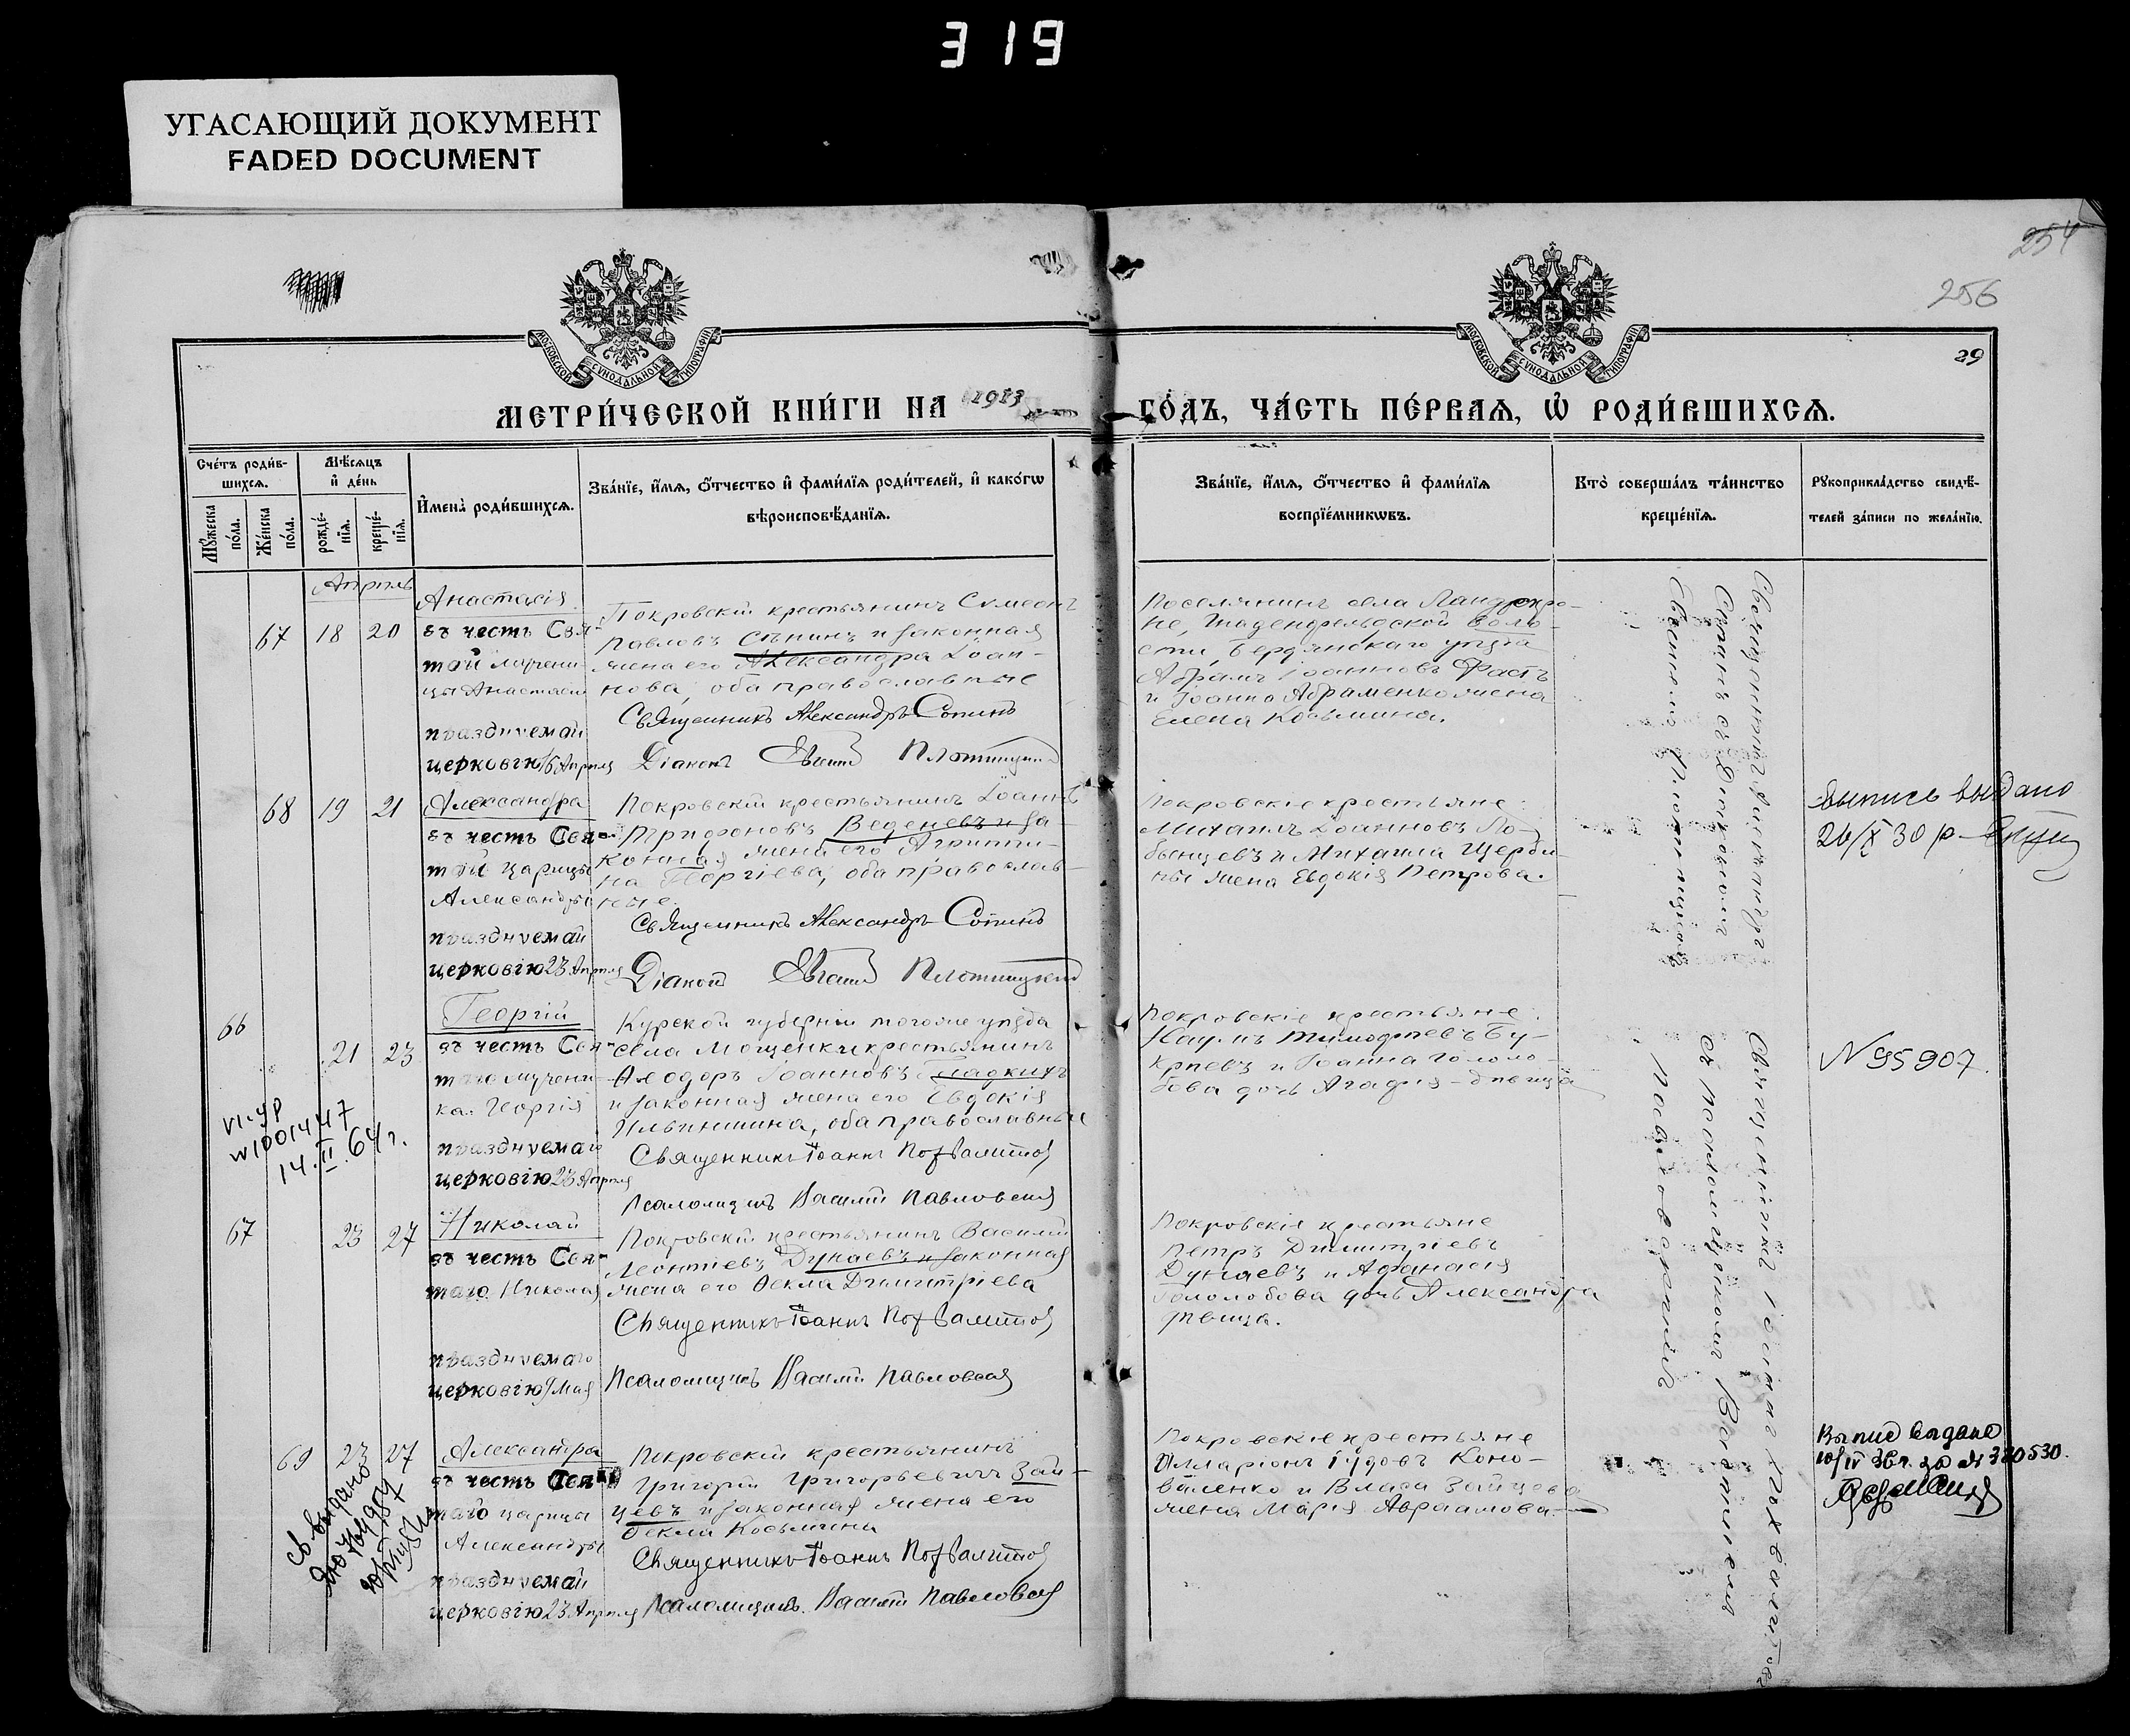 319
УГАСАЮЩИЙ ДОКУМЕНТ
FADED DOCUMENT
254
256
29
МОСКОВСКОЙ СѴНОДАЛЬНОЙ ТИПОГРАФІИ
МОСКОВСКОЙ СѴНОДАЛЬНОЙ ТИПОГРАФІИ
МЕТРИ́ЧЕСКОЙ КНИ́ГИ НА 1913 ГО́ДЪ, ЧА́СТЬ ПЕ́РВАѦ, Ѡ҆ РОДИ́ВШИХСѦ.
Сче́тъ роди́в-
шихсѧ.
Мꙋ́жеска по́ла.
Же́нска по́ла.
Мѣ́сѧцъ
и҆ де́нь
рожде́-
нїѧ.
креще́-
нїѧ.
И҆мена̀ роди́вшихсѧ.
Зва́нїе, и҆́мѧ, ѻ҆́тчество и҆ фами́лїѧ роди́телей, и҆ како́гѡ
вѣроисповѣ́данїѧ.
Зва́нїе, и҆́мѧ, ѻ҆́тчество и҆ фами́лїѧ
воспрїе́мникѡвъ.
Кто̀ соверша́лъ та́инство
креще́нїѧ.
Рꙋкоприкла́дство свидѣ́-
телей за́писи по жела́нїю.
Апрѣль
67 18 20
Анастасія
въ честь Свя-
той мучени
цы Анастасіи
празднуемой
церковію 15 Апрѣля
Покровскій крестьянинъ Сѵмеонъ
Павловъ Сѣнинъ и законная
жена его Александра Іоан-
нова, оба православные
Священникъ Александръ Сопинъ
Діаконъ Евгеній Плотницкій
Поселянинъ села Ландскро-
не, Гнаденфельдской воло-
сти, Бердянскаго уѣзда
Абрамъ Іоанновъ Фастъ
и Іоанна Абраменко жена
Елена Косьмина.
Священникъ Александръ
Сопинъ съ Діакономъ
Евгеніемъ Плотницкимъ
68 19 21
Александра
въ честь Свя-
той Царицы
Александры
празднуемой
церковію 23 Апрѣля
Покровскій крестьянинъ Іоаннъ
Трифоновъ Веденевъ и за-
конная жена его Агриппи-
на Георгіева, оба православ-
ные.
Священникъ Александръ Сопинъ
Діаконъ Евгеній Плотницкій
Покровскіе крестьяне:
Михаилъ Іоанновъ Ло-
бынцевъ и Михаила Щерби-
ны жена Евдокія Петрова.
Выпись выдано
26/X 30 р
66 21 23
Георгій
въ честь Свя-
того мучени-
ка Георгія
празднуемаго
церковію 23 Апрѣля
Курской губерніи того же уѣзда
села Мощенки крестьянинъ
Ѳеодоръ Іоанновъ Гладкихъ
и законная жена его Евдокія
Ильинишна, оба православные
Священникъ Іоаннъ Похвалитовъ
Псаломщикъ Василій Павловскій
Покровскіе крестьяне:
Наумъ Тимофеевъ Бу-
крѣевъ и Іоанна Гололо-
бова дочь Агафія - дѣвица
N 95907
w1001447
14.II.64 г.
67 23 27
Николай
въ честь Свя-
таго Николая
празднуемаго
церковію 9 Мая
Покровскій крестьянинъ Василій
Леонтіевъ Дунаевъ и законная
жена его Ѳекла Димитріева
Священникъ Іоаннъ Похвалитовъ
Псаломщикъ Василій Павловскій
Покровскіе крестьяне
Петръ Димитріевъ
Дунаевъ и Афанасія
Гололобова дочь Александра
дѣвица.
Священникъ Іоаннъ Похвалитовъ
съ Псаломщикомъ Василіемъ
Павловскимъ
69 23 27
Александра
въ честь Свя-
таго царицы
Александры
празднуемой
церковію 23 Апрѣля
Покровскій крестьянинъ
Григорій Григорьевичъ Зай-
цевъ и законная жена его
Ѳекла Косьмина
Священникъ Іоаннъ Похвалитовъ
Псаломщикъ Василій Павловскій
Покровскіе крестьяне
Илларіонъ Іудовъ Коно-
валенко и Власа Зайцева
жена Марія Авраамова.
Выпис выдано
10/IV 36 г. за № 380530.
св. выдано